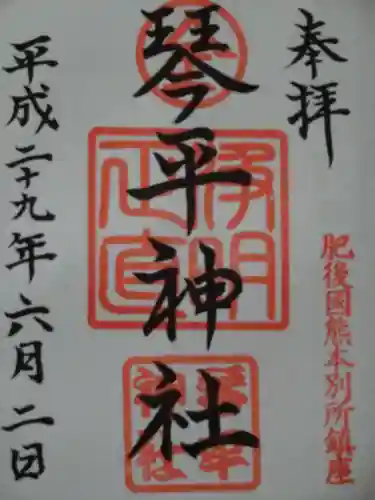 奉拝
肥後國熊本別所鎮座
琴平神社
平成二十九年六月二日
琴平
神社